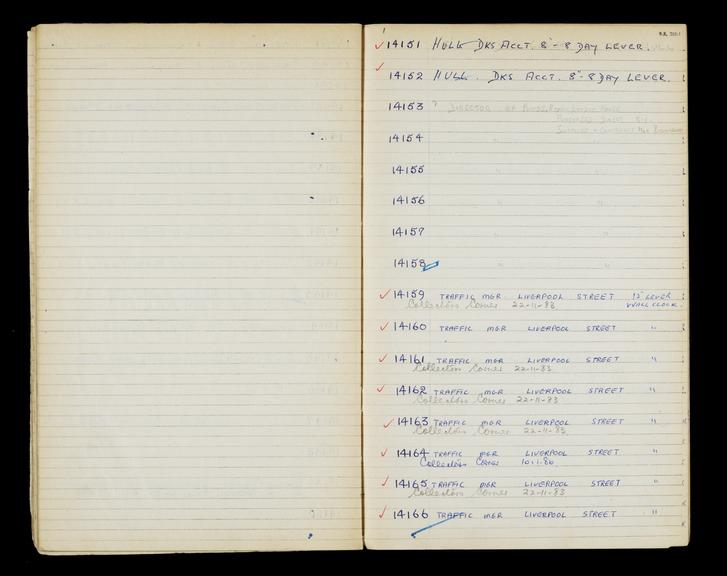 14151 HULL DKS ACCT. 8" - 8 DAY LEVER.
14152 HULL. DKS ACCT. 8" - 8 DAY LEVER.
14153 ? DIRECTOR OF
14154 " "
14155 " "
14156 " "
14157 " "
14158
14159 TRAFFIC MGR LIVERPOOL STREET 12" LEVER
Collectors Corner 22-11-83 WALL CLOCK.
14160 TRAFFIC MGR LIVERPOOL STREET "
14161 TRAFFIC MGR LIVERPOOL STREET "
Collectors Corner 22-11-83
14162 TRAFFIC MGR LIVERPOOL STREET "
Collectors Corner 22-11-83
14163 TRAFFIC MGR LIVERPOOL STREET "
Collectors Corner 22-11-83
14164 TRAFFIC MGR LIVERPOOL STREET "
Collectors Corner
14165 TRAFFIC MGR LIVERPOOL STREET "
Collectors Corner 22-11-83
14166 TRAFFIC MGR LIVERPOOL STREET "